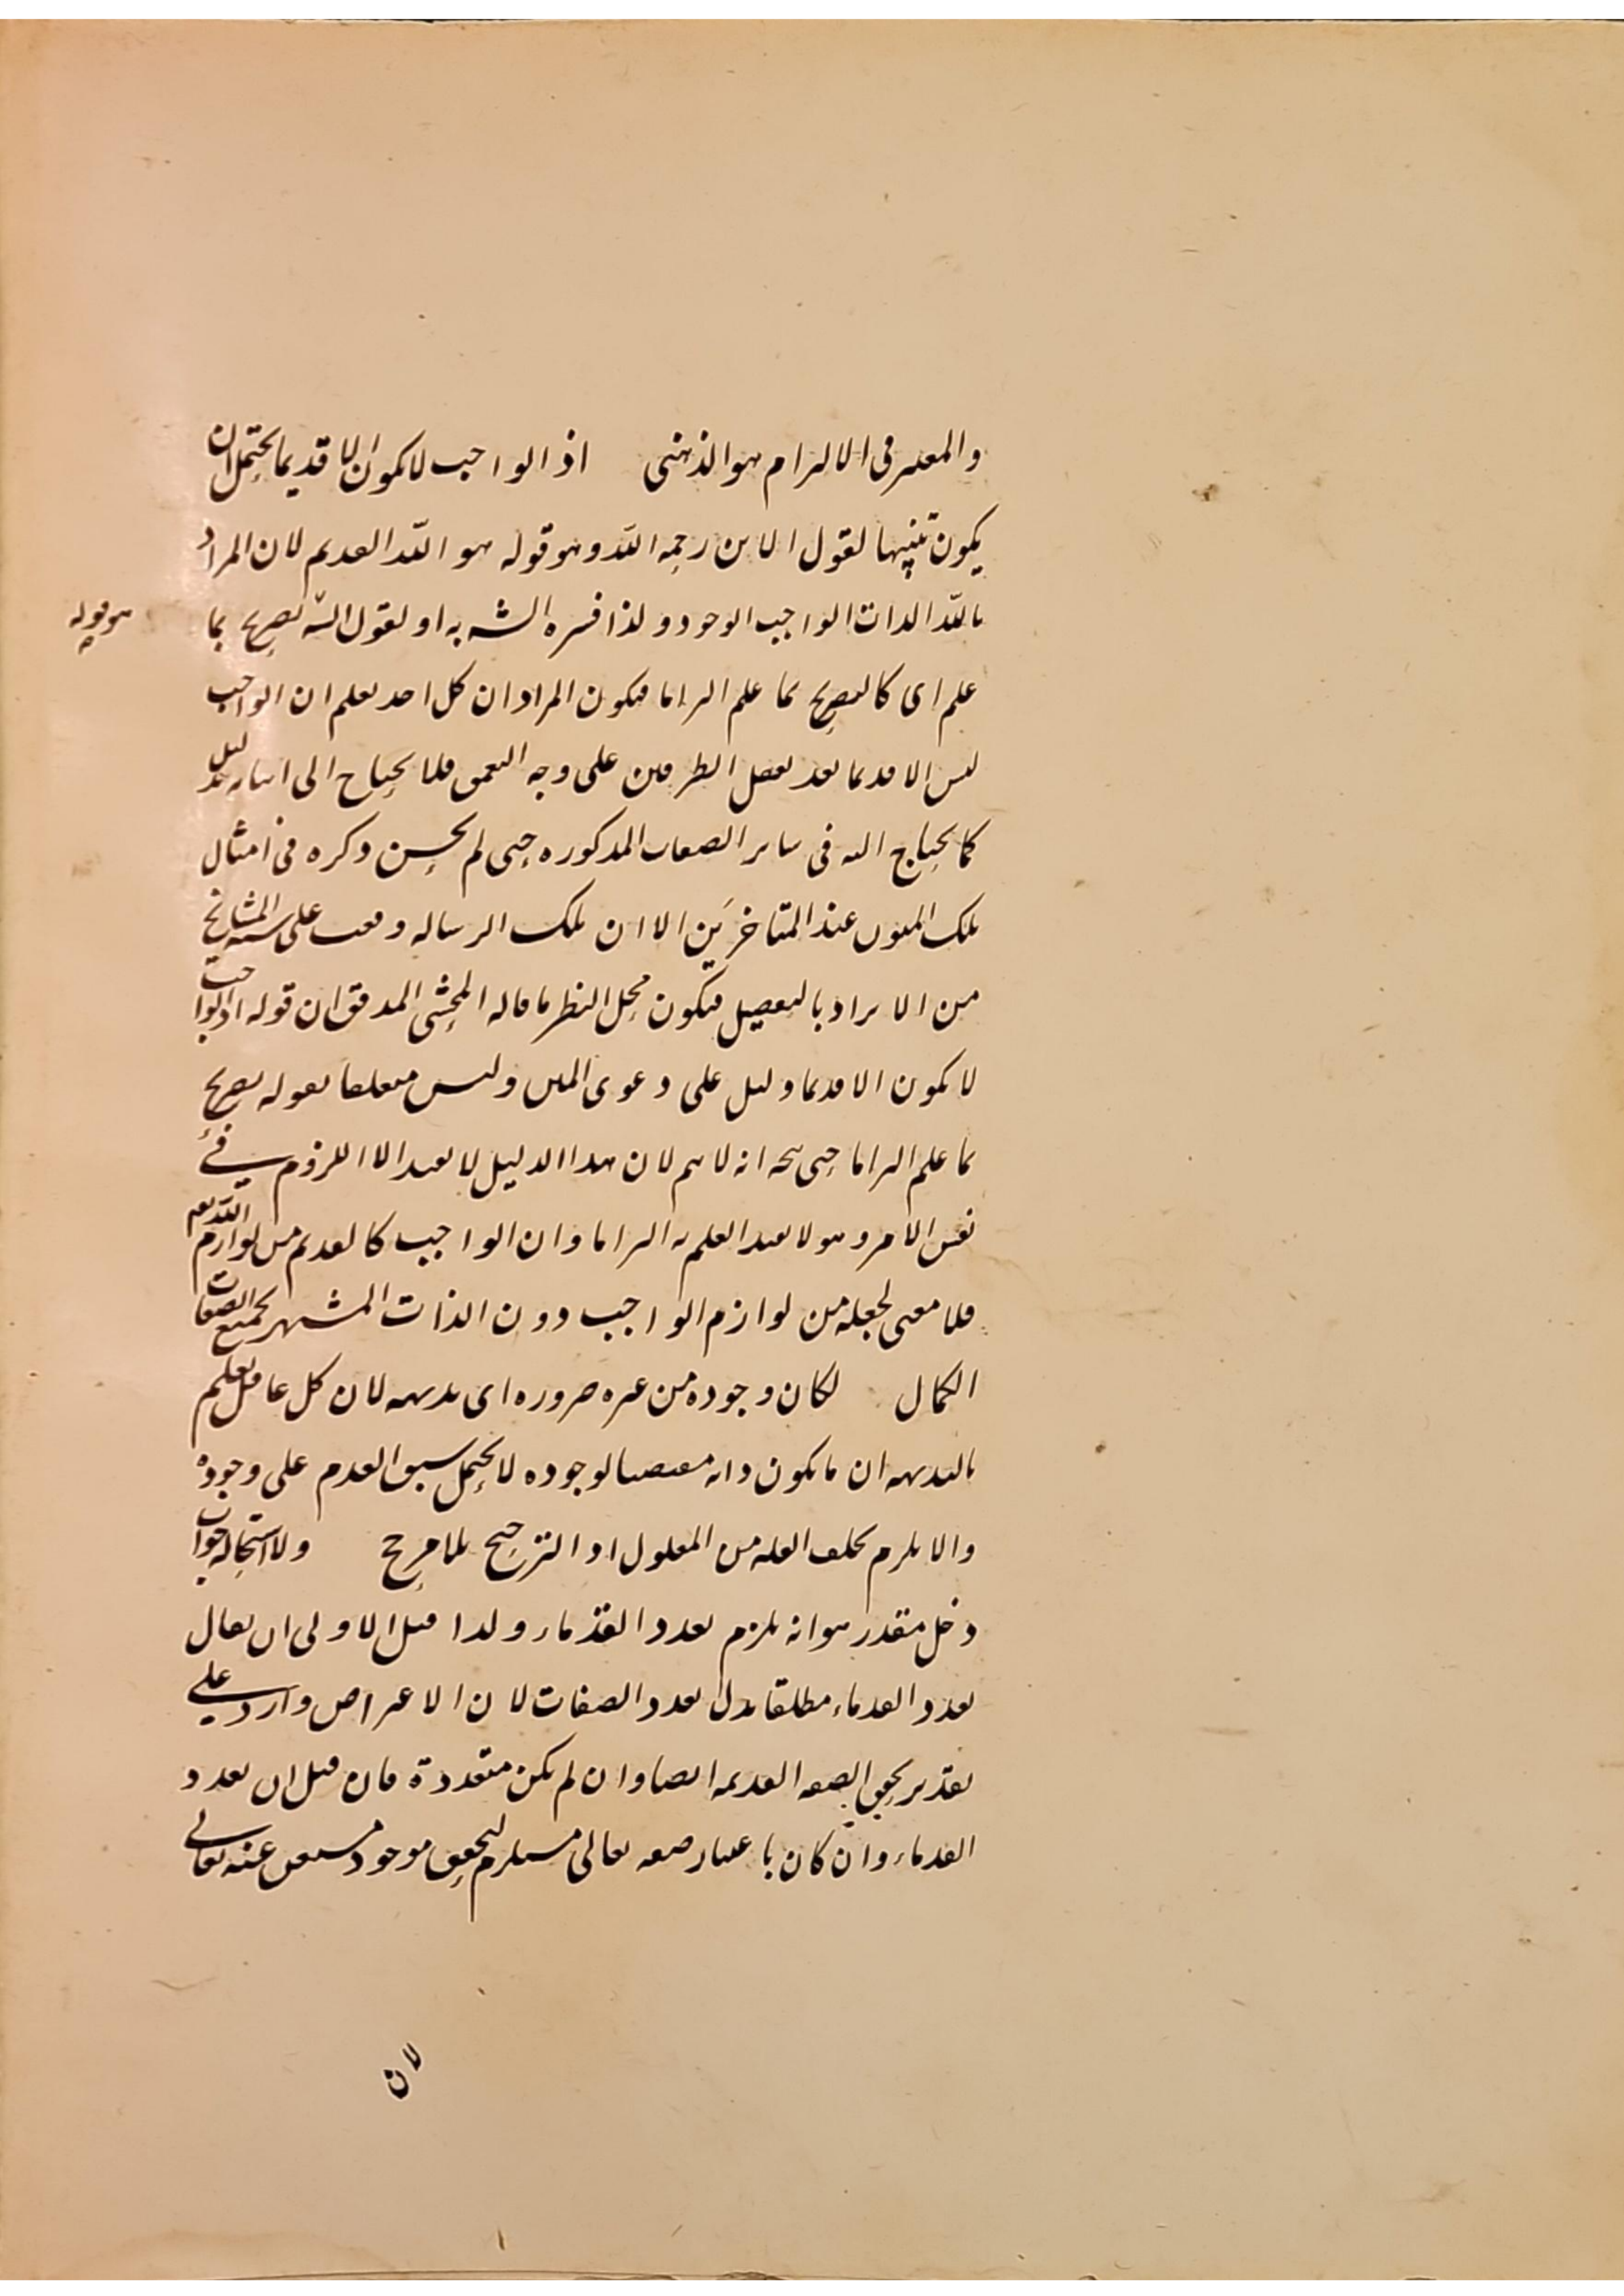 والمعتبر فى الالزام هو الذهنى اذ الواجب لا يكون الا قديما يحتمل ان
يكون تنبيها لقول الماتن رحمه الله وهو قوله هو الله القديم لان المراد
بالله الذات الواجب الوجود ولذا فسره الشه به او لقول الشه تصريح بما
هو قوله
علم اى كالتصريح بما علم التزاما فيكون المراد ان كل احد يعلم ان الواجب
ليس الا قديما بعد تعقل الطرفين على وجه التعمق فلا يحتاج الى اتيانه بدليل
كما يحتاج اليه فى ساير الصفات المذكوره حتى لم يحسن ذكره فى امثال
تلك المتون عند المتاخرين الا ان تلك الرساله وقعت على سنة المشايخ
من الايراد بالتفصيل فيكون محل النظر ما قاله المحشى المدقق ان قوله اذ الواجب
لا يكون الا قديما دليل على دعوى المتن وليس متعلقا بقوله تصريح
بما علم التزاما حتى يتجه انه لا يتم لان هذا الدليل لا يفيد الا اللزوم فى
نفس الامر وهو لا يفيد العلم به التزاما وان الواجب كالقديم من لوازم الله تعه
فلا معنى لجعله من لوازم الواجب دون الذات المشتهر بجميع الصفات
الكمال لكان وجوده من غيره ضروره اى بديهة لان كل عاقل يعلم
بالبديهه ان ما يكون ذاته مقتضيا لوجوده لا يحتمل سبق العدم على وجوده
والا يلزم تخلف العله من المعلول او الترجيح بلا مرجح ولا استحاله جواب
دخل مقدر هو انه يلزم تعدد القدماء ولذا قيل الاولى ان يقال
تعدد القدماء مطلقا بدل تعدد الصفات لان الاعتراض وارد على
تقدير تحقق الصفه القديمه ايضا وان لم يكن متعددة فان قيل ان تعدد
القدماء وان كان باعتبار صفه تعالى مستلزم لتحقق موجود مستغن عنه تعالى
لان